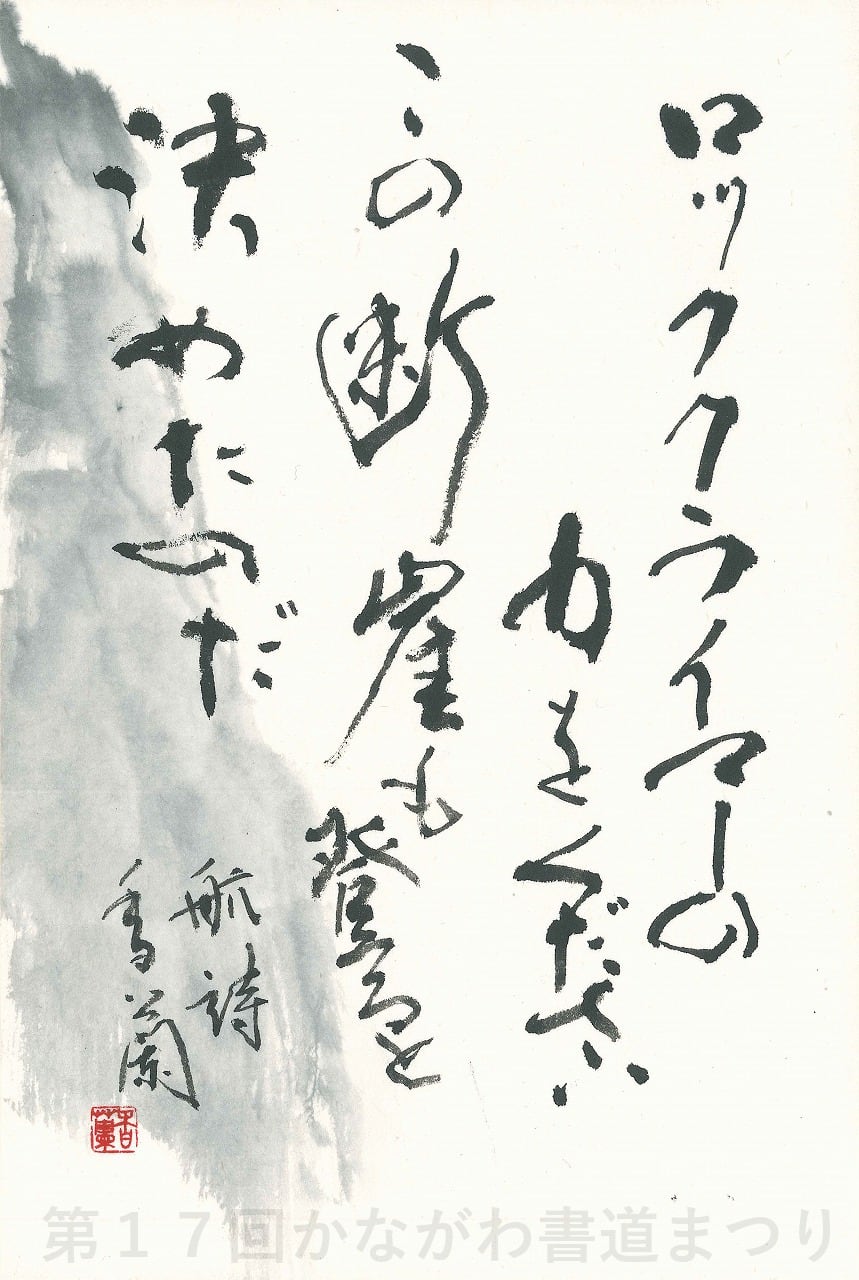 ロッククライマーの
力をください
この断崖も登ると
決めたのだ
航詩
香蘭
香蘭
第17回かながわ書道まつり